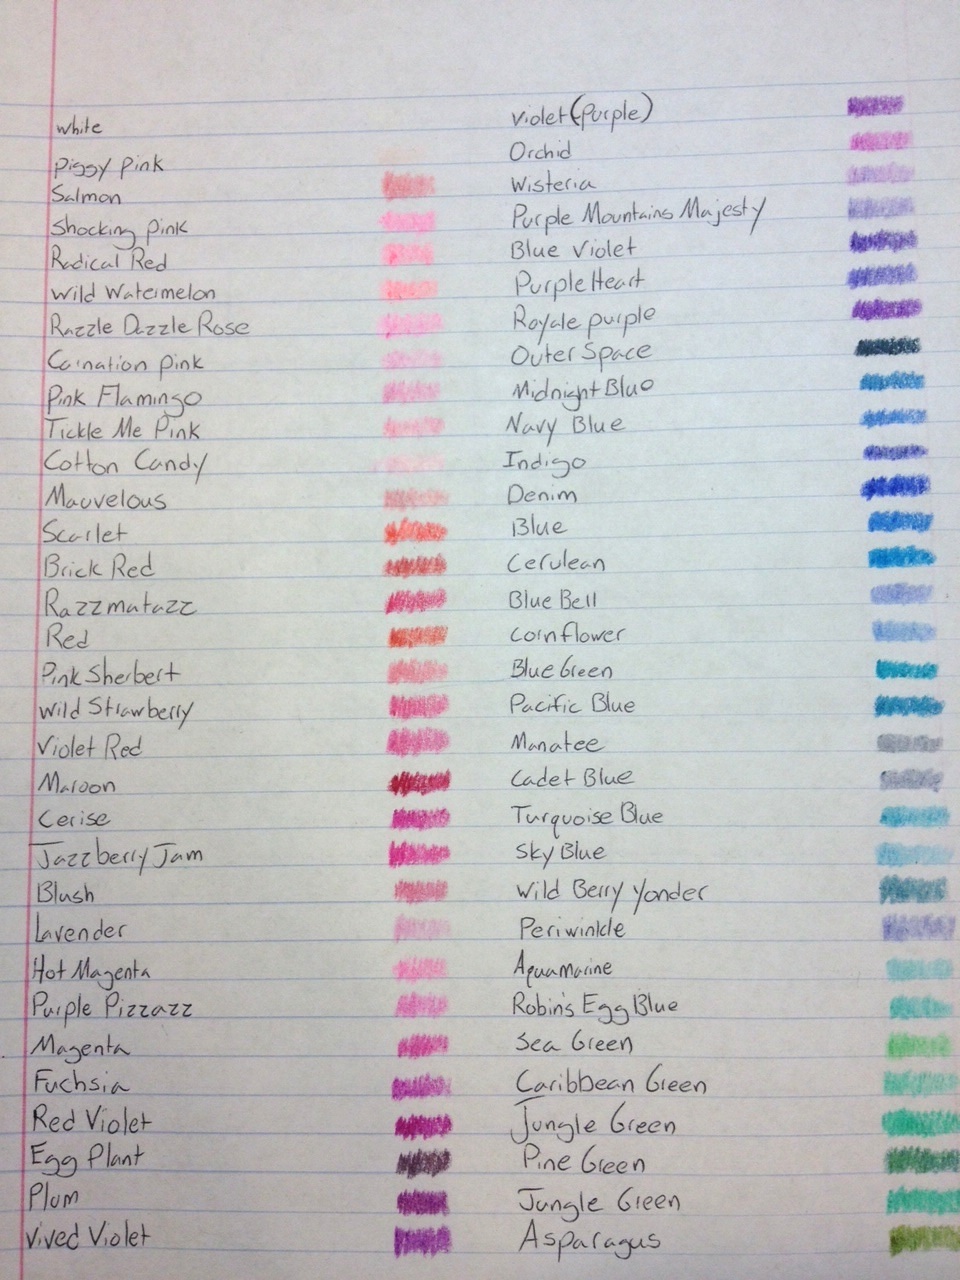 White
Piggy pink
Salmon
Shocking pink
Radical Red
Wild Watermelon
Razzle Dazzle Rose
Carnation pink
Pink Flamingo
Tickle Me Pink
Cotton Candy
Mauvelous
Scarlet
Brick Red
Razzmatazz
Red
Pink Sherbert
Wild Strawberry
Violet Red
Maroon
Cerise
Jazzberry Jam
Blush
Lavender
Hot Magenta
Purple Pizzazz
Magenta
Fuchsia
Red Violet
Egg Plant
Plum
Vived Violet
Violet (Purple)
Orchid
Wisteria
Purple Mountains Majesty
Blue Violet
Purple Heart
Royale purple
Outer Space
Midnight Blue
Navy Blue
Indigo
Denim
Blue
Cerulean
Blue Bell
Cornflower
Blue Green
Pacific Blue
Manatee
Cadet Blue
Turquoise Blue
Sky Blue
Wild Berry Yonder
Periwinkle
Aquamarine
Robin's Egg Blue
Sea Green
Caribbean Green
Jungle Green
Pine Green
Jungle Green
Asparagus